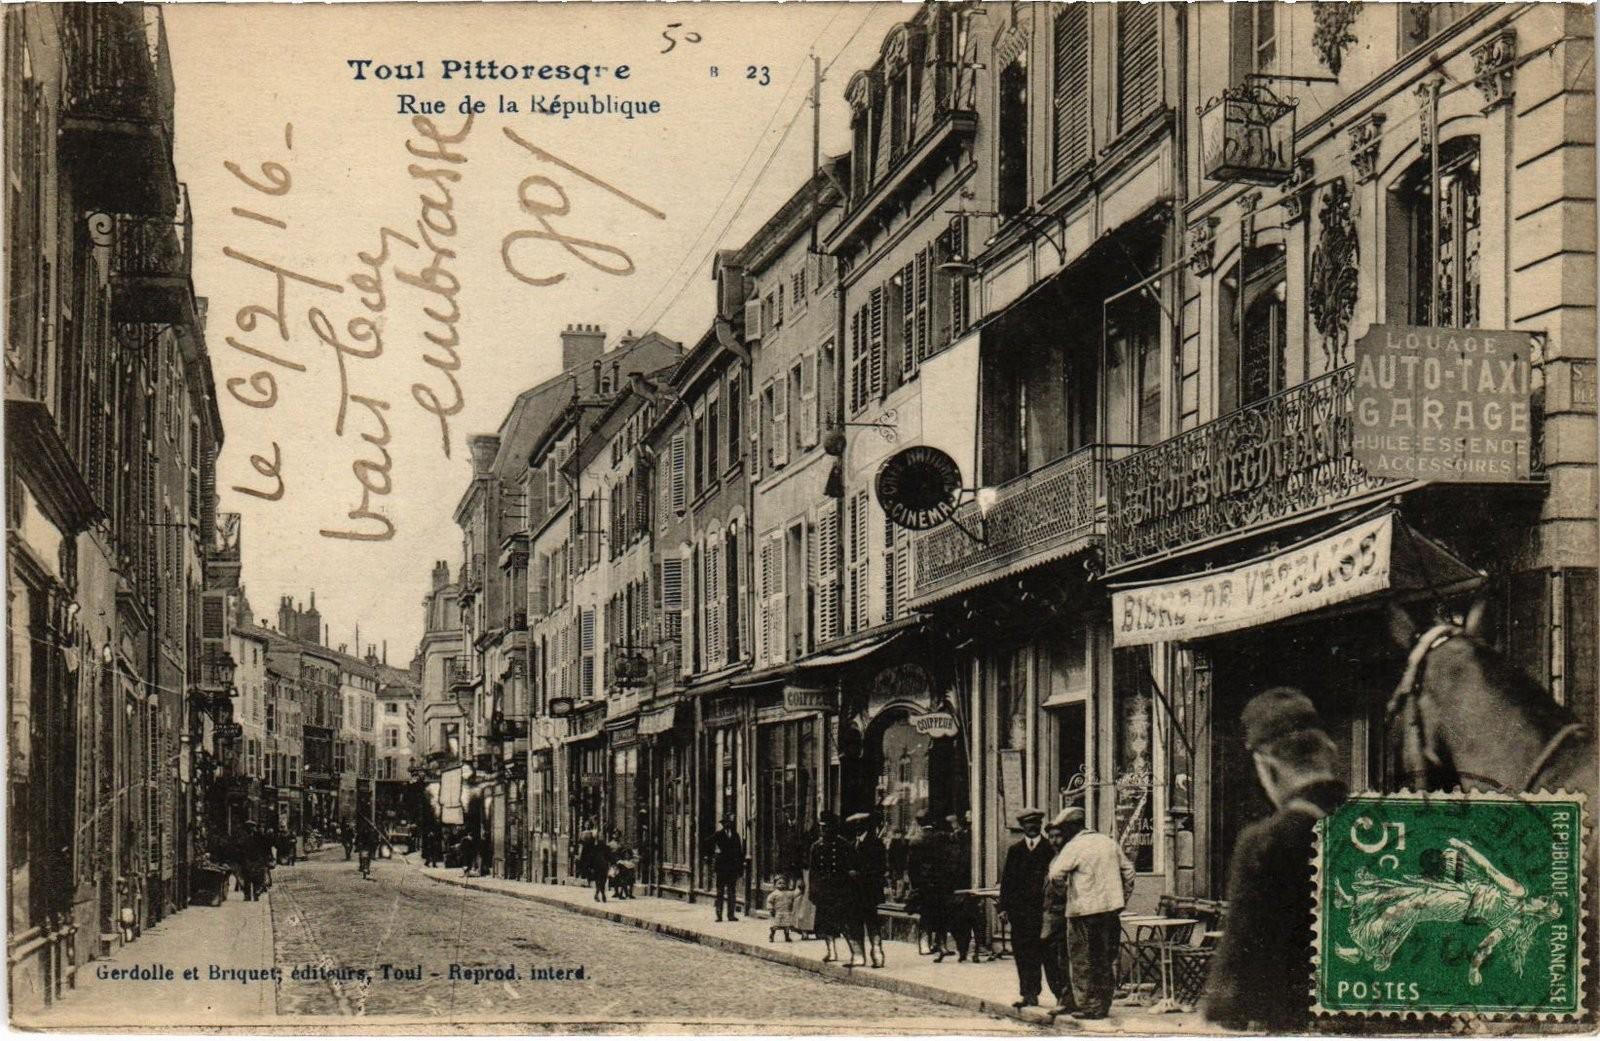 50
Toul Pittoresque B 23
Rue de la République
Le 6/2/16-
vait bien
embrasse
Jo/
LOUAGE
AUTO-TAXI
GARAGE
HUILE-ESSENCE
-ACCESSOIRES-
CINÉMA
CAFÉ
COIFFEUR
COIFFEUR
Gerdolle et Briquet, éditeurs, Toul - Reprod. interd.
5c
REPUBLIQUE FRANÇAISE
POSTES